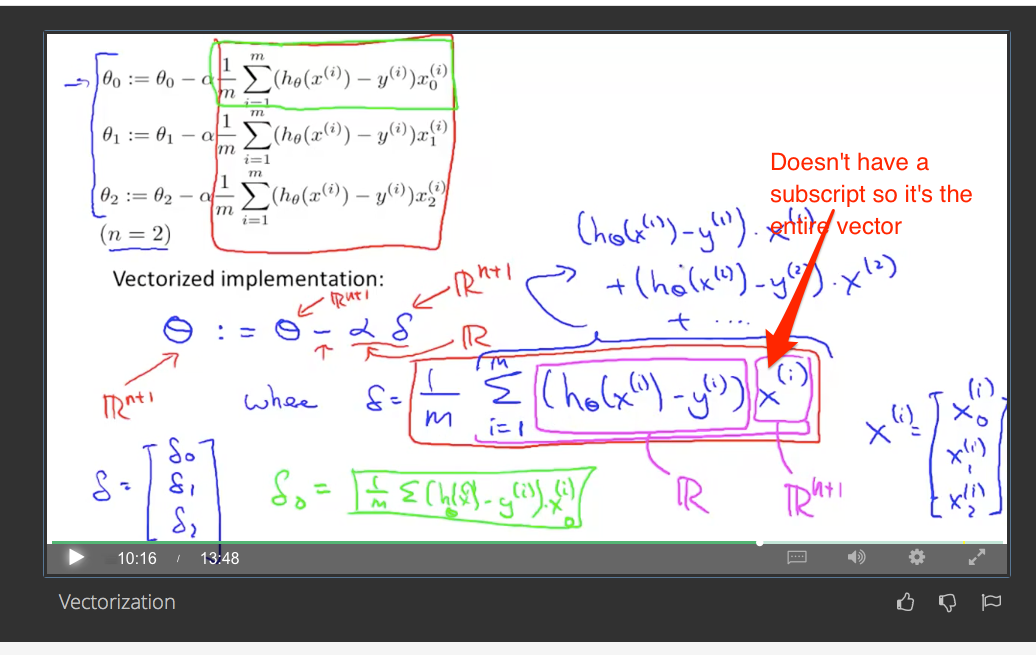 θ₀ := θ₀ − α 1/m ∑_{i=1}^{m} (h_θ(x^{(i)}) − y^{(i)})x₀^{(i)}
θ₁ := θ₁ − α 1/m ∑_{i=1}^{m} (h_θ(x^{(i)}) − y^{(i)})x₁^{(i)}
θ₂ := θ₂ − α 1/m ∑_{i=1}^{m} (h_θ(x^{(i)}) − y^{(i)})x₂^{(i)}
(n = 2)
Doesn't have a
subscript so it's the
entire vector
(h_θ(x^{(1)}) − y^{(1)}) · x^{(1)}
+ (h_θ(x^{(2)}) − y^{(2)}) · x^{(2)}
+ ....
Vectorized implementation:
ℝ^{n+1} ℝ^{n+1}
θ := θ − α δ
ℝ
ℝ^{n+1}
where δ = 1/m ∑_{i=1}^{m} (h_θ(x^{(i)}) − y^{(i)}) x^{(i)}
x^{(i)} = [x₀^{(i)} x₁^{(i)} x₂^{(i)}]
ℝ ℝ^{n+1}
δ = [δ₀ δ₁ δ₂]
δ₀ = 1/m ∑ (h_θ(x^{(i)}) − y^{(i)}) · x₀^{(i)}
10:16 / 13:48
Vectorization